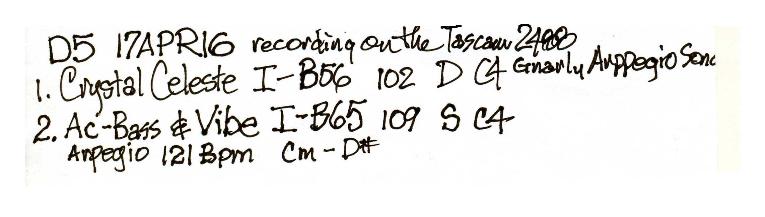 D5 17APR16 recording on the Tascam 2488
1. Crystal Celeste I-B56 102 D C4 Gnarly Arppegio Sond
2. Ac-Bass & Vibe I-B65 109 S C4
Arpegio 121 Bpm Cm - D#